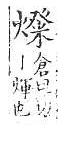 燦
倉旦切
丨煇也